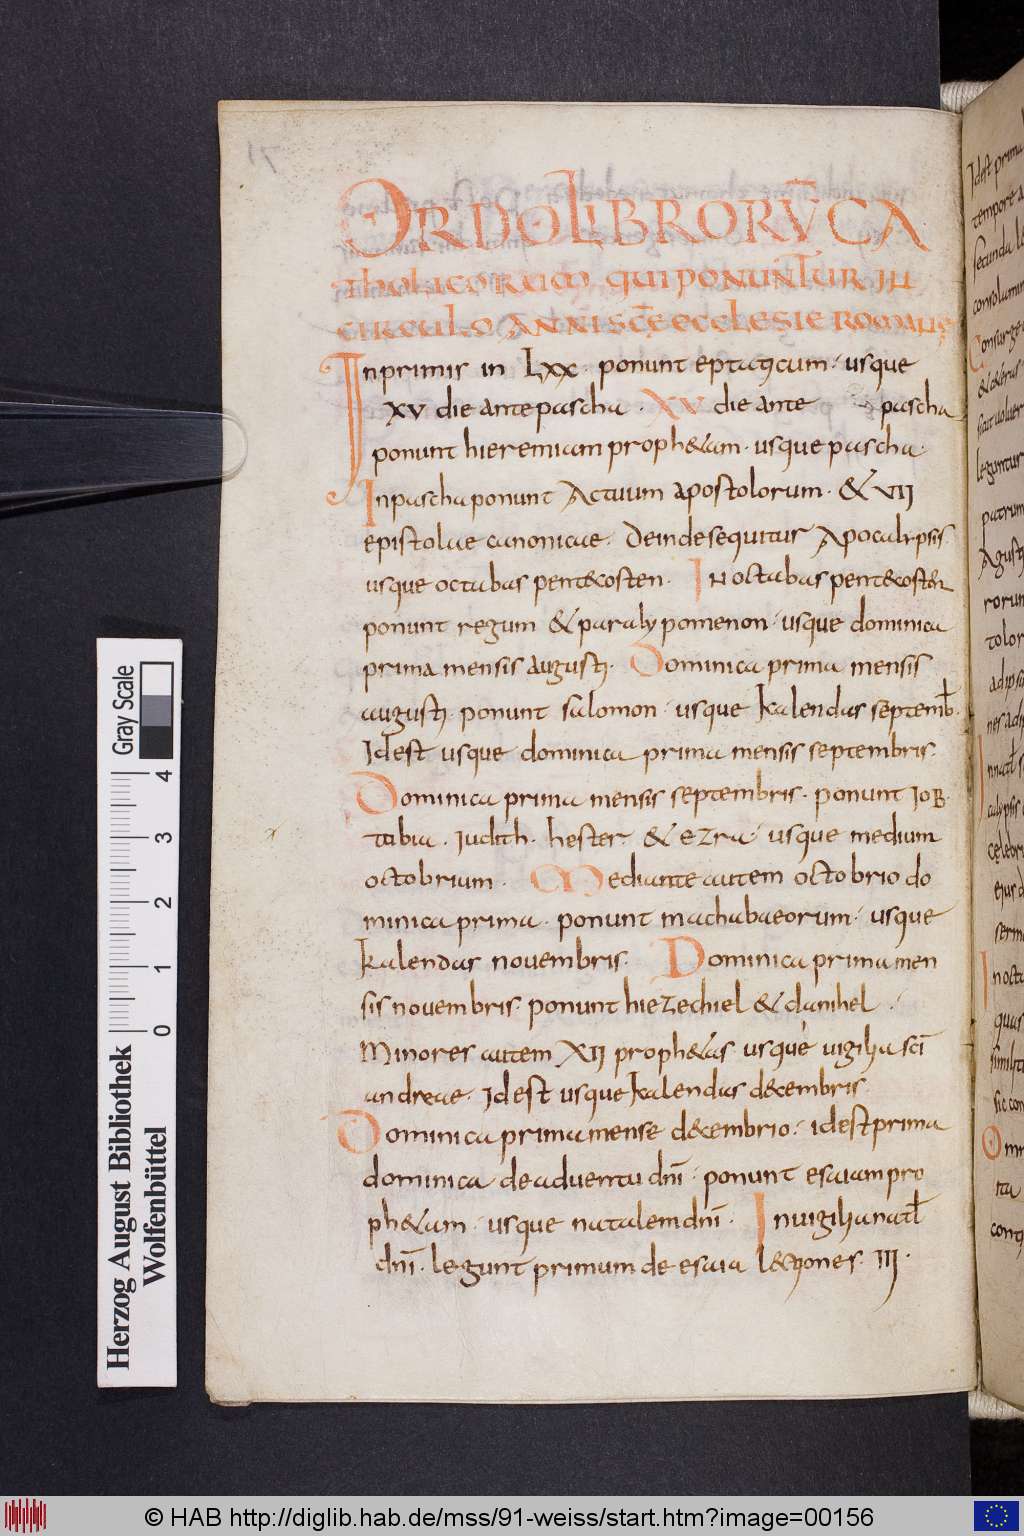 ORDO LIBRORV̄ CA
tholicorum qui ponuntur in
circulo anni sc̄e ecclesie romanę
Inprimis in Lxx. ponunt eptaticum. usque
xv die ante pascha. XV die ante pascha
ponunt hieremiam proph&am. usque pascha.
In pascha ponunt Actuum apostolorum. & VII
epistolae canonicae. Deinde sequitur Apocalypsis.
usque octabas pent&costen. In octabas pent&costen
ponunt regum & paralypomenon. usque dominica
prima mensis augusti. Dominica prima mensis
augusti. ponunt salomon. usque kalendas septemb̄.
Idest usque dominica prima mensis septembris.
Dominica prima mensis septembris. ponunt IOB.
tabia. Judith. hester. & ezra. usque medium
octobrium. Mediante autem octobrio do
minica prima. ponunt machabaeorum. usque
kalendas novembris. Dominica prima men
sis novembris. ponunt hiezechiel & danihel.
Minores autem XII proph&as. usque uigilia sc̄i
andreae. Idest usque kalendas decembris.
Dominica prima mense decembrio. idest prima
dominica de aduentu dn̄i. ponunt esaiam pro
ph&am. usque natalem dn̄i. In uigilia natł
dn̄i. legunt primum de esaia lectiones. III.
Idest prima
tempore a
secunda
Consurge
patrum
Agusti
In octa
quas
sic con
ita
71
Herzog August Bibliothek
Wolfenbüttel
Gray Scale
0 1 2 3 4
© HAB http://diglib.hab.de/mss/91-weiss/start.htm?image=00156